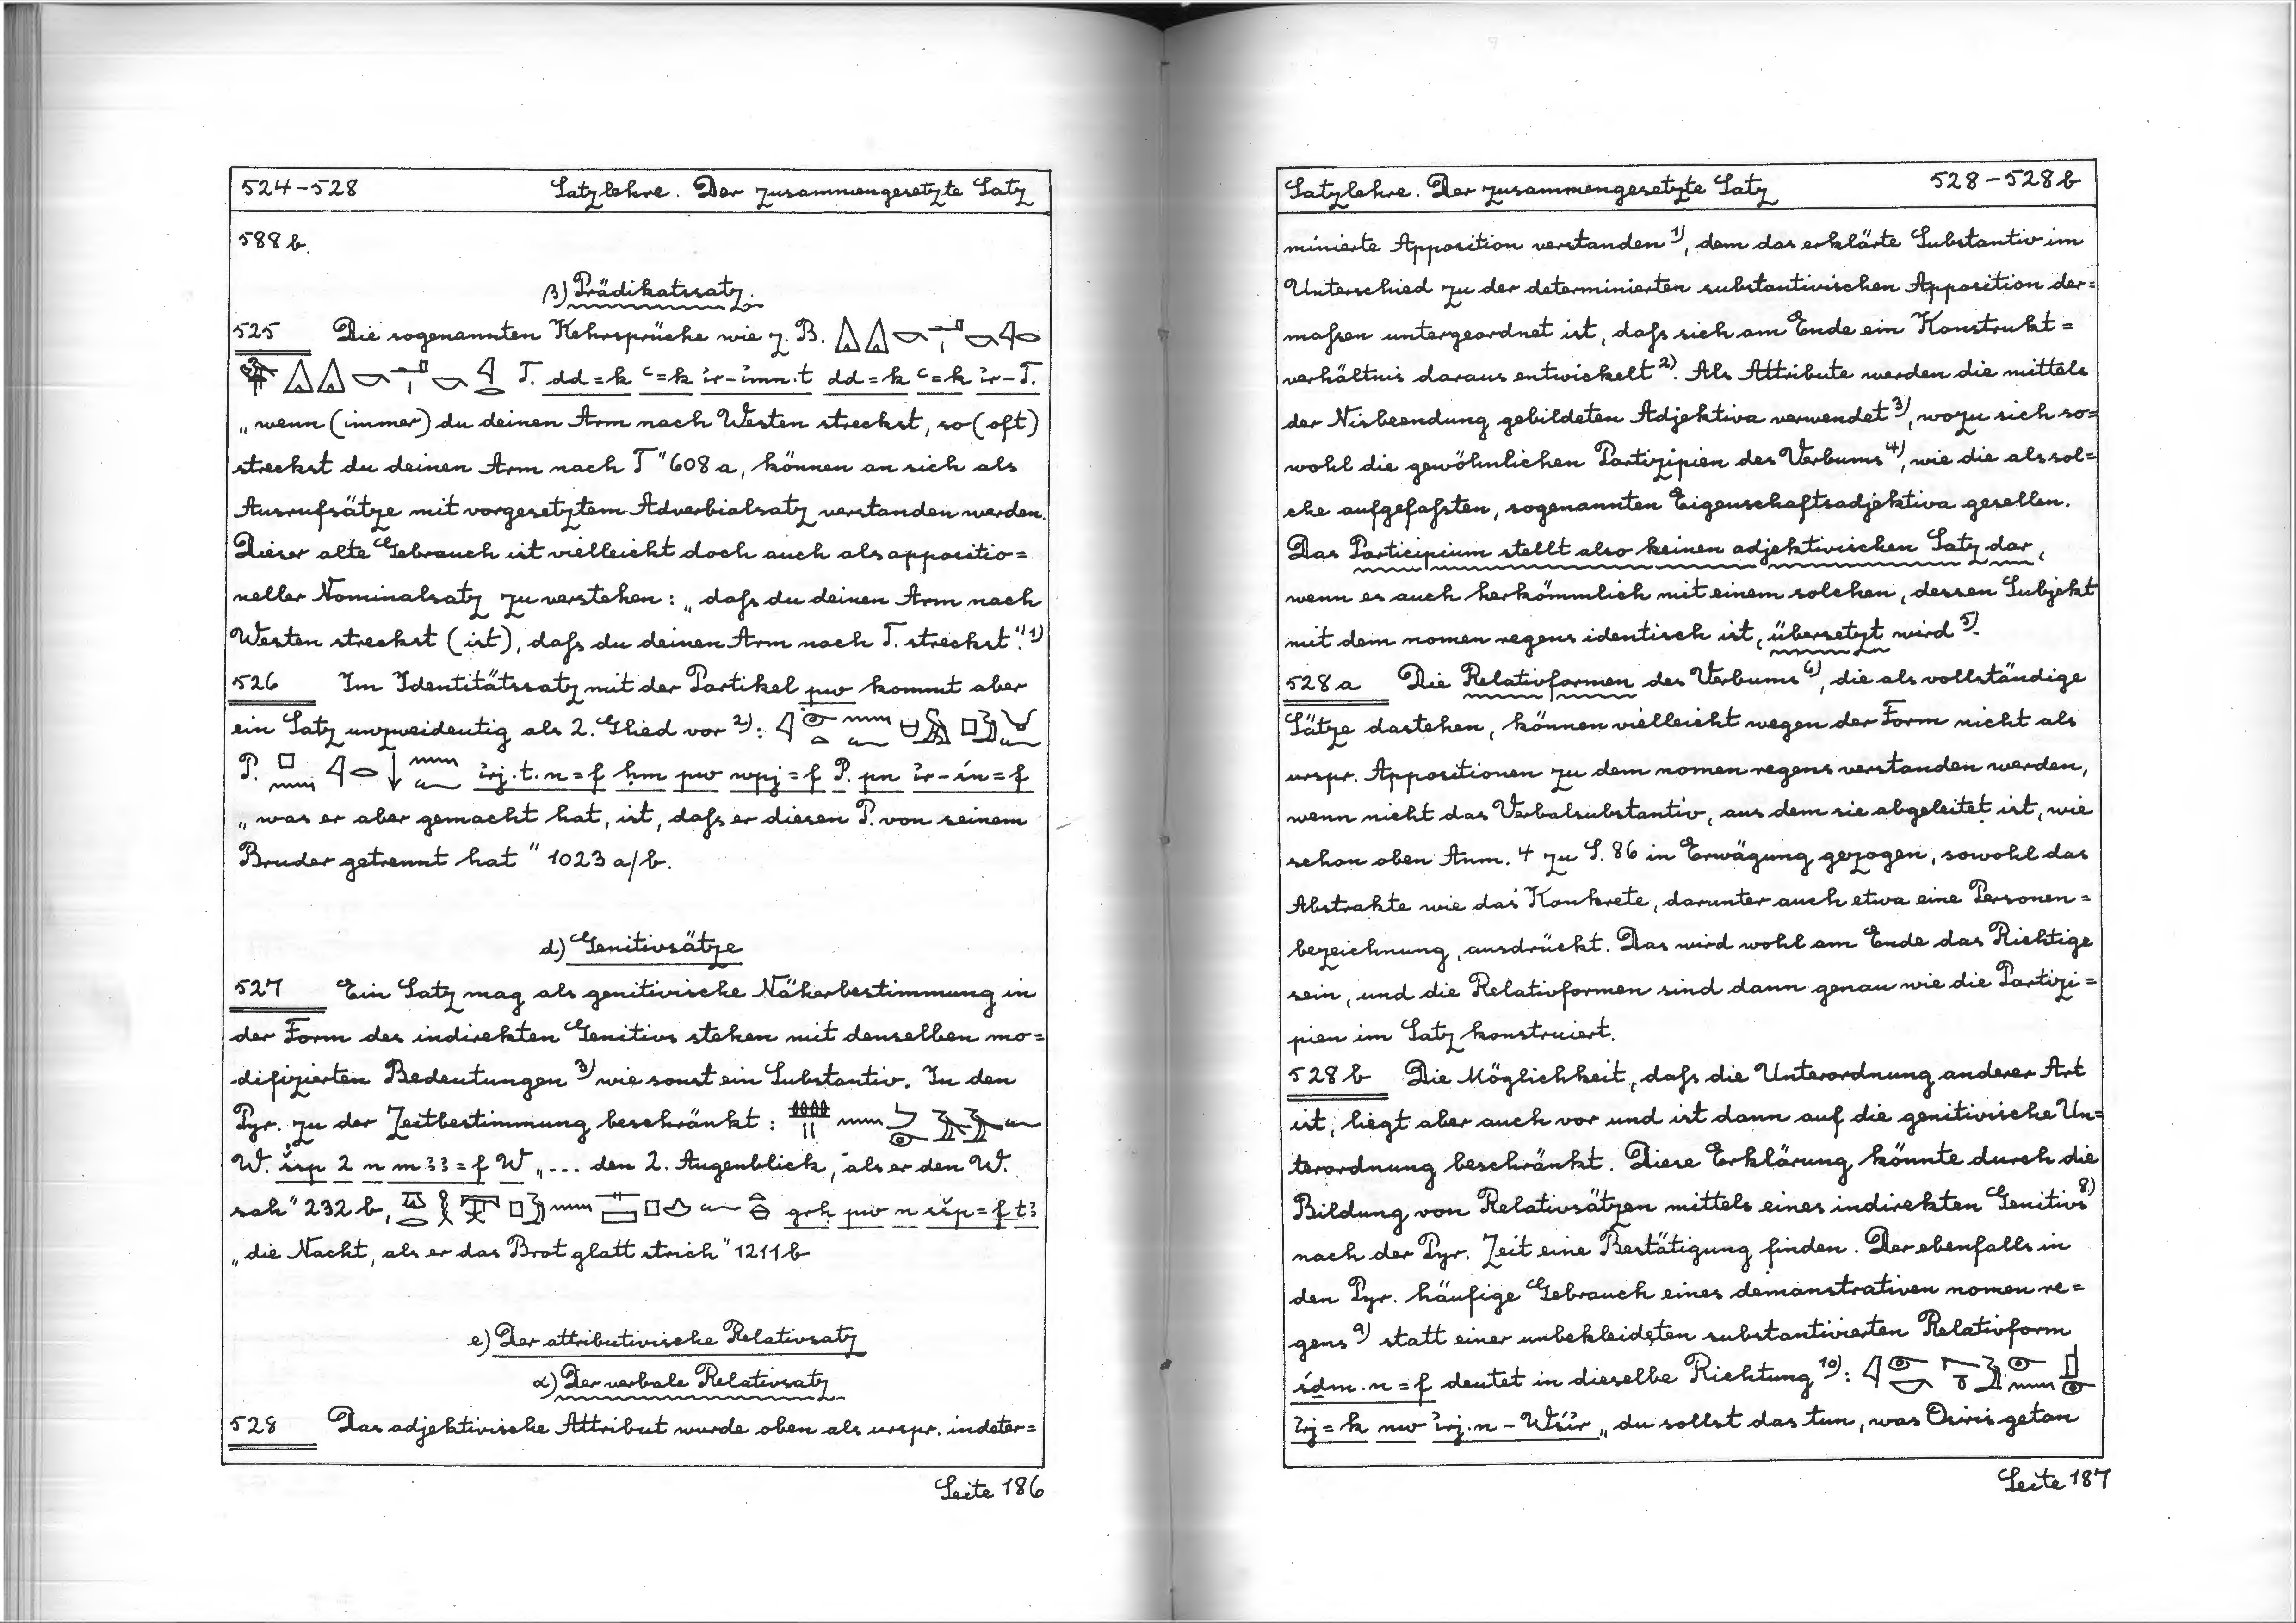 524-528 Satzlehre. Der zusammengesetzte Satz
588 b.
β) Prädikatssatz.
525 Die sogenannten Kehrsprüche wie z. B.
T. dd=k ꜥ=k ı͗r-ı͗mn.t dd=k ꜥ=k ı͗r-T.
„wenn (immer) du deinen Arm nach Westen streckst, so (oft)
streckst du deinen Arm nach T" 608 a, können an sich als
Ausrufsätze mit vorgesetztem Adverbialsatz verstanden werden.
Dieser alte Gebrauch ist vielleicht doch auch als appositio=
neller Nominalsatz zu verstehen: „daſs du deinen Arm nach
Westen streckst (ist), daſs du deinen Arm nach T. streckst".1)
526 Im Identitätssatz mit der Partikel pw kommt aber
ein Satz unzweideutig als 2. Glied vor 2):
P. ı͗rj.t.n=f ḥm pw wpj=f P. pn ı͗r-śn=f
„was er aber gemacht hat, ist, daſs er diesen P. von seinem
Bruder getrennt hat" 1023 a/b.
d) Genitivsätze
527 Ein Satz mag als genitivische Näherbestimmung in
der Form des indirekten Genitivs stehen mit denselben mo=
difizierten Bedeutungen 3) wie sonst ein Substantiv. In den
Pyr. zu der Zeitbestimmung beschränkt:
W. šsp 2 n mꜣꜣ=f W „... den 2. Augenblick, als er den W.
sah" 232 b, grḥ pw n sšp=f tꜣ
„die Nacht, als er das Brot glatt strich" 1211 b
e) Der attributivische Relativsatz
α) Der verbale Relativsatz
528 Das adjektivische Attribut wurde oben als urspr. indeter=
Seite 186
Satzlehre. Der zusammengesetzte Satz 528-528 b
minierte Apposition verstanden 1), dem das erklärte Substantiv im
Unterschied zu der determinierten substantivischen Apposition der=
maſsen untergeordnet ist, daſs sich am Ende ein Konstrukt=
verhältnis daraus entwickelt 2). Als Attribute werden die mittels
der Nisbeendung gebildeten Adjektiva verwendet 3), wozu sich so=
wohl die gewöhnlichen Partizipien des Verbums 4), wie die als sol=
che aufgefaſsten, sogenannten Eigenschaftsadjektiva gesellen.
Das Participium stellt also keinen adjektivischen Satz dar,
wenn es auch herkömmlich mit einem solchen, dessen Subjekt
mit dem nomen regens identisch ist, übersetzt wird 5).
528 a Die Relativformen des Verbums 6), die als vollständige
Sätze dastehen, können vielleicht wegen der Form nicht als
urspr. Appositionen zu dem nomen regens verstanden werden,
wenn nicht das Verbalsubstantiv, aus dem sie abgeleitet ist, wie
schon oben Anm. 4 zu S. 86 in Erwägung gezogen, sowohl das
Abstrakte wie das Konkrete, darunter auch etwa eine Personen=
bezeichnung, ausdrückt. Das wird wohl am Ende das Richtige
sein, und die Relativformen sind dann genau wie die Partizi=
pien im Satz konstruiert.
528 b Die Möglichkeit, daſs die Unterordnung anderer Art
ist, liegt aber auch vor und ist dann auf die genitivische Un=
terordnung beschränkt. Diese Erklärung könnte durch die
Bildung von Relativsätzen mittels eines indirekten Genitivs 8)
nach der Pyr. Zeit eine Bestätigung finden. Der ebenfalls in
den Pyr. häufige Gebrauch eines demonstrativen nomen re=
gens 9) statt einer unbekleideten substantivierten Relativform
śdm.n=f deutet in dieselbe Richtung 10):
ı͗rj=k nw ı͗rj.n-Wśı͗r „du sollst das tun, was Osiris getan
Seite 187